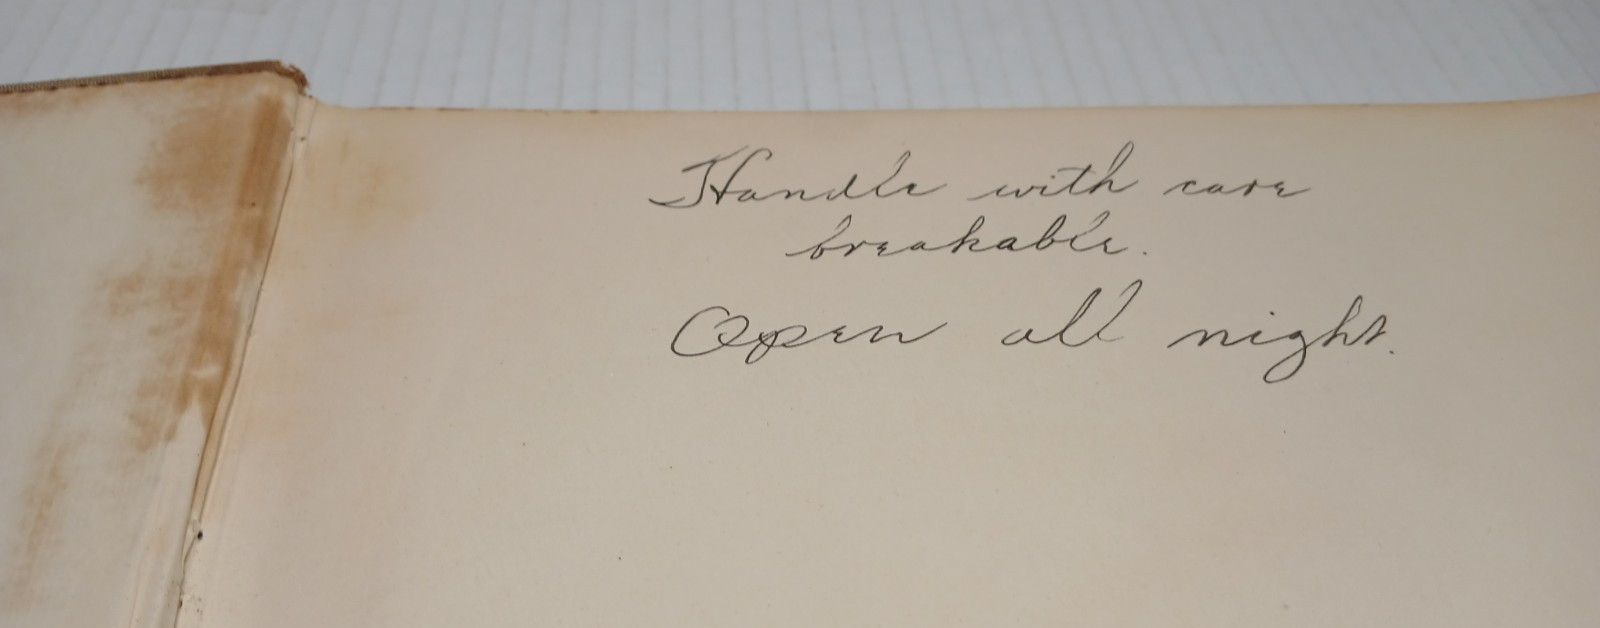 Handle with care
breakable.
Open all night.